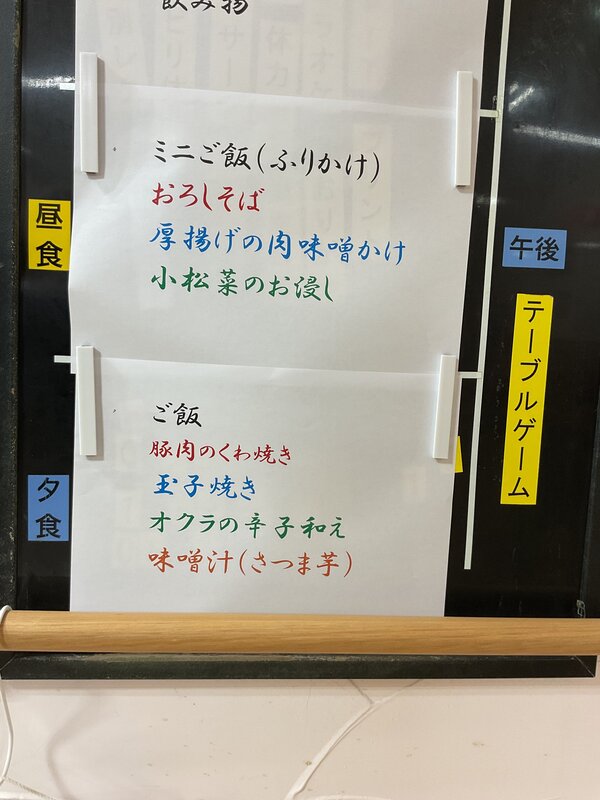 飲み物
昼食
ミニご飯(ふりかけ)
おろしそば
厚揚げの肉味噌かけ
小松菜のお浸し
午後
テーブルゲーム
夕食
ご飯
豚肉のくわ焼き
玉子焼き
オクラの辛子和え
味噌汁(さつま芋)